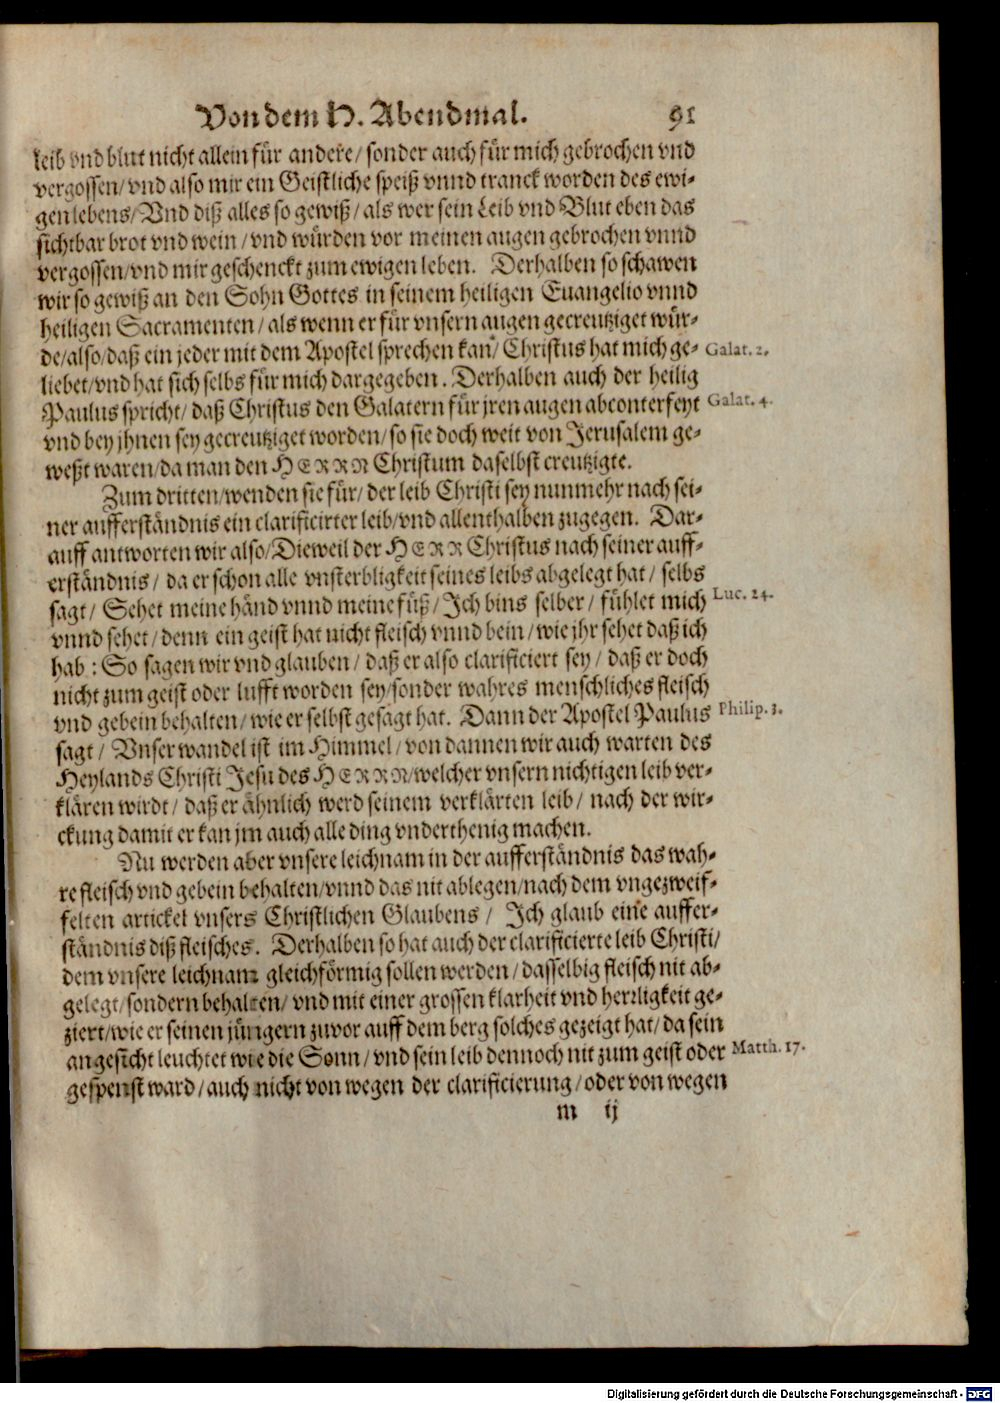 Von dem H. Abendmal. 91
leib vnd blut nicht allein für andere/ sonder auch für mich gebrochen vnd
vergossen/ vnd also mir ein Geistliche speiß vnnd tranck worden des ewi-
gen lebens/ Vnd diß alles so gewiß/ als wer sein Leib vnd Blut eben das
sichtbar brot vnd wein/ vnd würden vor meinen augen gebrochen vnnd
vergossen/ vnd mir geschenckt zum ewigen leben. Derhalben so schawen
wir so gewiß an den Sohn Gottes in seinem heiligen Euangelio vnnd
heiligen Sacramenten/ als wenn er für vnsern augen gecreutziget wür-
de/ also/ daß ein jeder mit dem Apostel sprechen kan/ Christus hat mich ge- Galat. 2.
liebet/ vnd hat sich selbs für mich dargegeben. Derhalben auch der heilig
Paulus spricht/ daß Christus den Galatern für jren augen abconterfeyt Galat. 4.
vnd bey jhnen sey gecreutziget worden/ so sie doch weit von Jerusalem ge-
weßt waren/ da man den HERRN Christum daselbst creutzigte.
Zum dritten/ wenden sie für/ der leib Christi sey nunmehr nach sei-
ner aufferständnis ein clarificirter leib/ vnd allenthalben zugegen. Dar-
auff antworten wir also/ Dieweil der HERR Christus nach seiner auff-
erständnis/ da er schon alle vnsterbligkeit seines leibs abgelegt hat/ selbs
sagt/ Sehet meine händ vnnd meine füß/ Ich bins selber/ fühlet mich Luc. 24.
vnnd sehet/ denn ein geist hat nicht fleisch vnnd bein/ wie jhr sehet daß ich
hab: So sagen wir vnd glauben/ daß er also clarificiert sey/ daß er doch
nicht zum geist oder lufft worden sey/ sonder wahres menschliches fleisch
vnd gebein behalten/ wie er selbst gesagt hat. Dann der Apostel Paulus Philip. 3.
sagt/ Vnser wandel ist im Himmel/ von dannen wir auch warten des
Heylands Christi Jesu des HERRN/ welcher vnsern nichtigen leib ver-
klären wirdt/ daß er ähnlich werd seinem verklärten leib/ nach der wir-
ckung damit er kan jm auch alle ding vnderthenig machen.
Nu werden aber vnsere leichnam in der aufferständnis das wah-
re fleisch vnd gebein behalten/ vnnd das nit ablegen/ nach dem vngezweif-
felten artickel vnsers Christlichen Glaubens/ Ich glaub eine auffer-
ständnis diß fleisches. Derhalben so hat auch der clarificierte leib Christi/
dem vnsere leichnam gleichförmig sollen werden/ dasselbig fleisch nit ab-
gelegt/ sondern behalten/ vnd mit einer grossen klarheit vnd herrligkeit ge-
ziert/ wie er seinen jüngern zuvor auff dem berg solches gezeigt hat/ da sein
angesicht leuchtet wie die Sonn/ vnd sein leib dennoch nit zum geist oder Matth. 17.
gespenst ward/ auch nicht von wegen der clarificierung/ oder von wegen
m ij
Digitalisierung gefördert durch die Deutsche Forschungsgemeinschaft - DFG